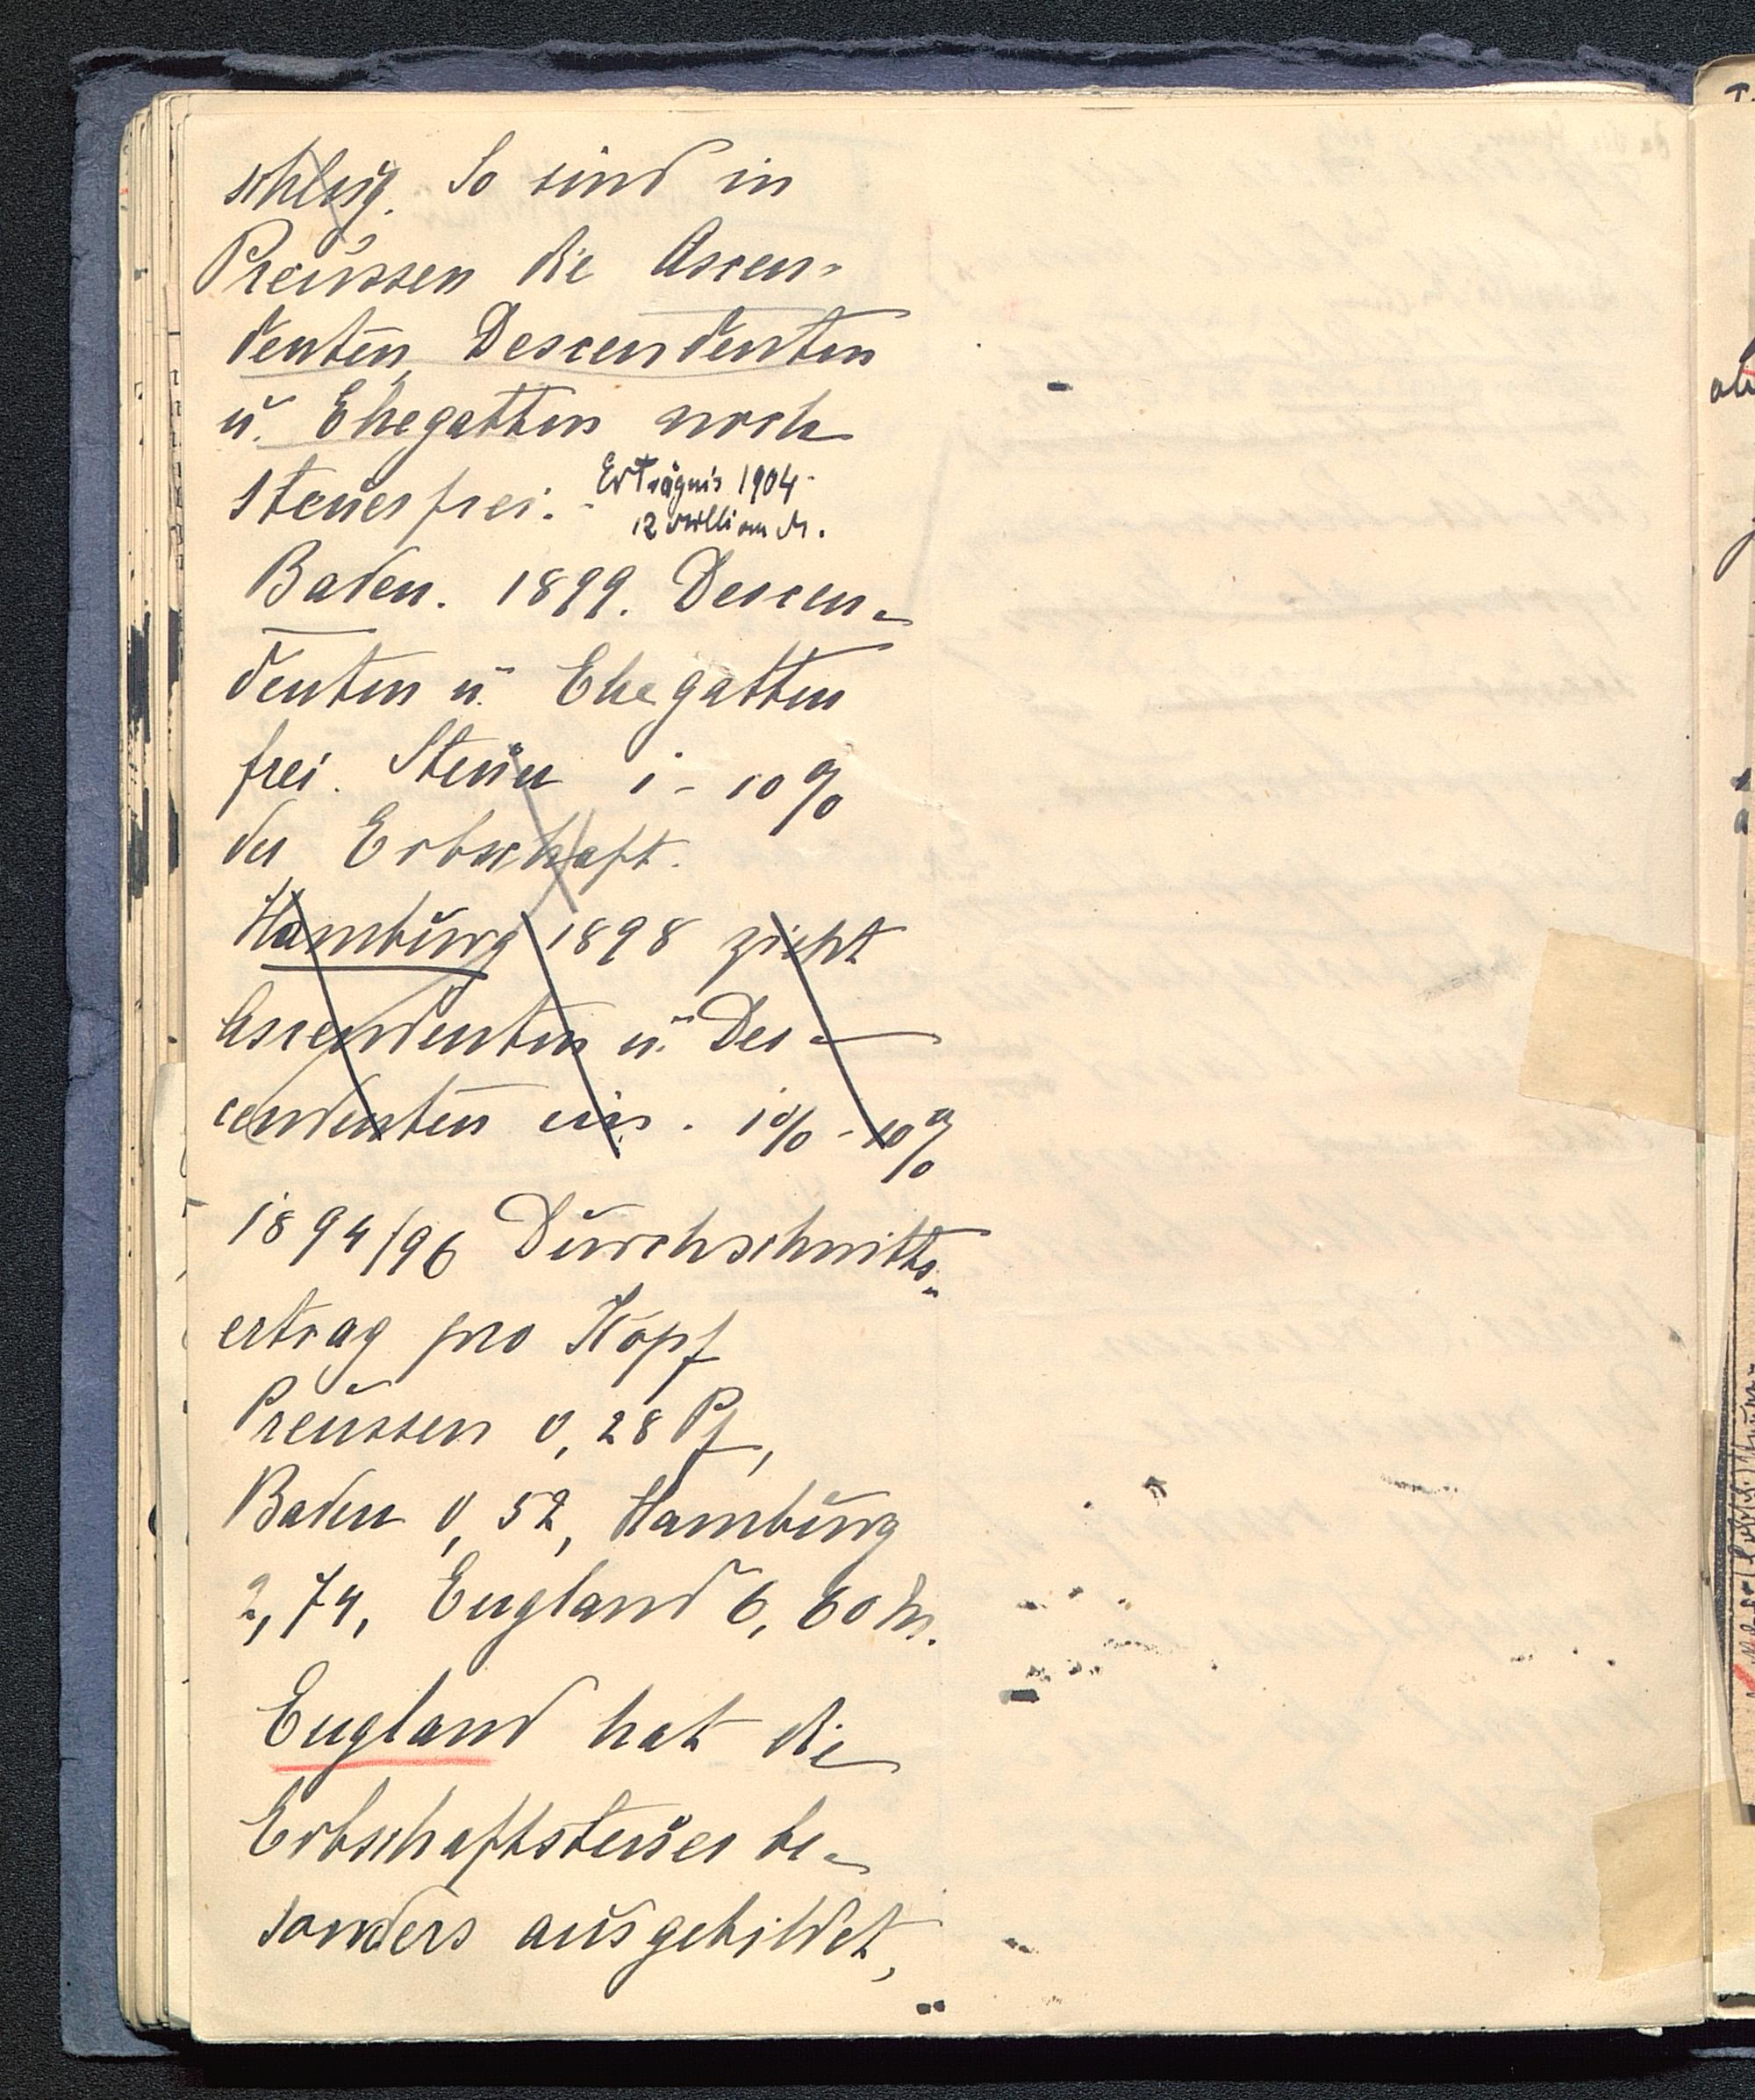 schlag. So sind in
Preussen die Ascen-
denten, Descendenten
u. Ehegatten noch
steuerfrei. - Erträgnis 1904
12 Million M.
Baden. 1899. Descen-
denten u. Ehegatten
frei. Steuer 1 - 10 %
der Erbschaft.
Hamburg 1898 zieht
Ascendenten u. Des-
cendenten ein. 1% - 10%
1894/96 Durchschnitts-
ertrag pro Kopf
Preussen 0,28 Pf,
Baden 0,52, Hamburg
2,74, England 6,60 M.
England hat die
Erbschaftsteuer be-
sonders ausgebildet,